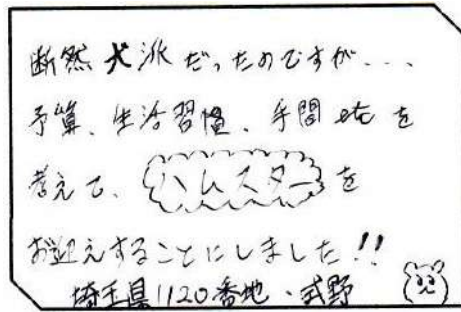 断然犬派だったのですが...
予算、生活習慣、手間etcを
考えて、ハムスターを
お迎えすることにしました!!
埼玉県1120番地・武野